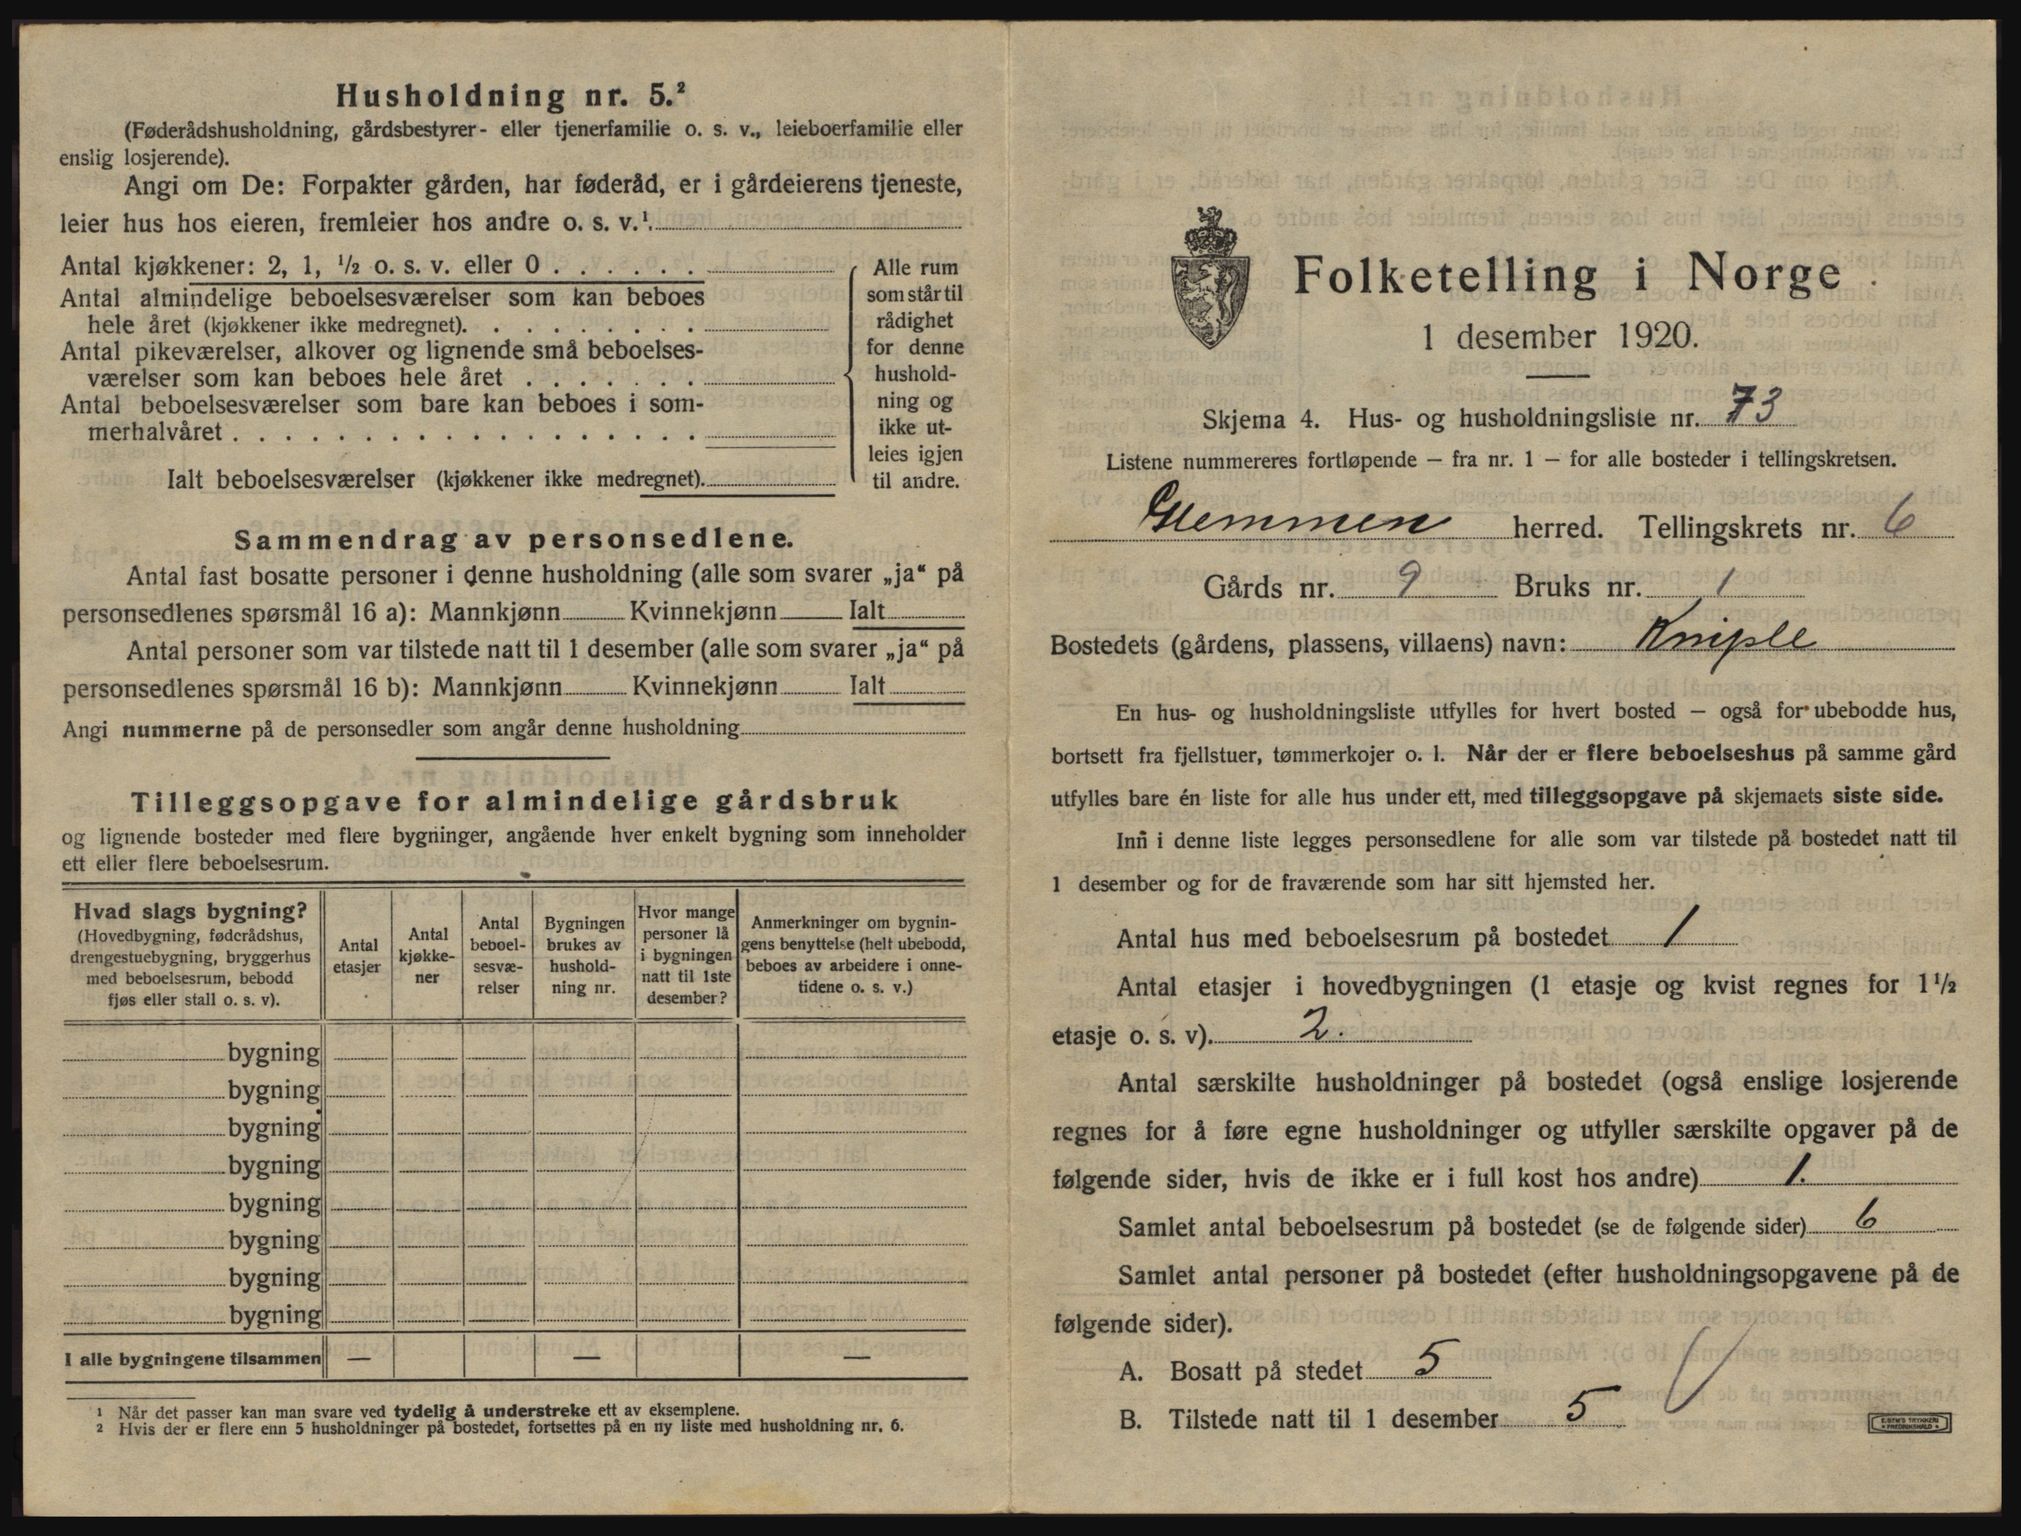 Husholdning nr. 5.²
(Føderådshusholdning, gårdsbestyrer- eller tjenerfamilie o. s. v., leieboerfamilie eller
enslig losjerende).
Angi om De: Forpakter gården, har føderåd, er i gårdeierens tjeneste,
leier hus hos eieren, fremleier hos andre o. s. v.¹.
Antal kjøkkener: 2, 1, ½ o. s. v. eller 0 . . . . . .
Antal almindelige beboelsesværelser som kan beboes
hele året (kjøkkener ikke medregnet). . . . . . . . .
Antal pikeværelser, alkover og lignende små beboelses-
værelser som kan beboes hele året . . . . . . .
Antal beboelsesværelser som bare kan beboes i som-
merhalvåret . . . . . . . . . . . . . . . . . .
Ialt beboelsesværelser (kjøkkener ikke medregnet).
Alle rum
som står til
rådighet
for denne
hushold-
ning og
ikke ut-
leies igjen
til andre.
Sammendrag av personsedlene.
Antal fast bosatte personer i denne husholdning (alle som svarer „ja“ på
personsedlenes spørsmål 16 a): Mannkjønn Kvinnekjønn Ialt
Antal personer som var tilstede natt til 1 desember (alle som svarer „ja“ på
personsedlenes spørsmål 16 b): Mannkjønn Kvinnekjønn Ialt
Angi nummerne på de personsedler som angår denne husholdning
Tilleggsopgave for almindelige gårdsbruk
og lignende bosteder med flere bygninger, angående hver enkelt bygning som inneholder
ett eller flere beboelsesrum.
Hvad slags bygning?
(Hovedbygning, føderådshus,
drengestuebygning, bryggerhus
med beboelsesrum, bebodd
fjøs eller stall o. s. v).
Antal
etasjer
Antal
kjøkke-
ner
Antal
beboel-
sesvæ-
relser
Bygningen
brukes av
hushold-
ning nr.
Hvor mange
personer lå
i bygningen
natt til 1ste
desember?
Anmerkninger om bygnin-
gens benyttelse (helt ubebodd,
beboes av arbeidere i onne-
tidene o. s. v.)
bygning
bygning
bygning
bygning
bygning
bygning
bygning
bygning
I alle bygningene tilsammen — — —
¹ Når det passer kan man svare ved tydelig å understreke ett av eksemplene.
² Hvis der er flere enn 5 husholdninger på bostedet, fortsettes på en ny liste med husholdning nr. 6.
Folketelling i Norge
1 desember 1920.
Skjema 4. Hus- og husholdningsliste nr. 73
Listene nummereres fortløpende — fra nr. 1 — for alle bosteder i tellingskretsen.
Glemmen herred. Tellingskrets nr. 6
Gårds nr. 9 Bruks nr. 1
Bostedets (gårdens, plassens, villaens) navn: Kniple
En hus- og husholdningsliste utfylles for hvert bosted — også for ubebodde hus,
bortsett fra fjellstuer, tømmerkojer o. l. Når der er flere beboelseshus på samme gård
utfylles bare én liste for alle hus under ett, med tilleggsopgave på skjemaets siste side.
Inn i denne liste legges personsedlene for alle som var tilstede på bostedet natt til
1 desember og for de fraværende som har sitt hjemsted her.
Antal hus med beboelsesrum på bostedet 1
Antal etasjer i hovedbygningen (1 etasje og kvist regnes for 1½
etasje o. s. v). 2.
Antal særskilte husholdninger på bostedet (også enslige losjerende
regnes for å føre egne husholdninger og utfyller særskilte opgaver på de
følgende sider, hvis de ikke er i full kost hos andre) 1.
Samlet antal beboelsesrum på bostedet (se de følgende sider) 6
Samlet antal personer på bostedet (efter husholdningsopgavene på de
følgende sider).
A. Bosatt på stedet 5
B. Tilstede natt til 1 desember 5